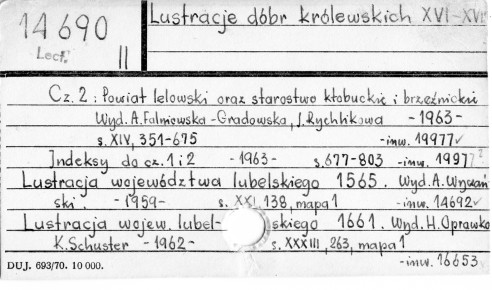 14690
Lect.
II
Lustracje dóbr królewskich XVI-XVII
Cz. 2: Powiat lelowski oraz starostwo kłobuckie i brzeźnickie
Wyd. A. Falniowska-Gradowska, J. Rychlikowa -1963-
s. XIV, 351-675 -inw. 19977
Indeksy do cz. 1 i 2 -1963- s. 677-803 -inw. 19977
Lustracja województwa lubelskiego 1565. Wyd. A. Wyczań
ski. -1959- s. XXI, 138, mapa 1 -inw. 14692
Lustracja wojew. lubel- skiego 1661. Wyd. H. Oprawko
K. Schuster -1962- s. XXXIII, 263, mapa 1
-inw. 16653
DUJ. 693/70. 10 000.